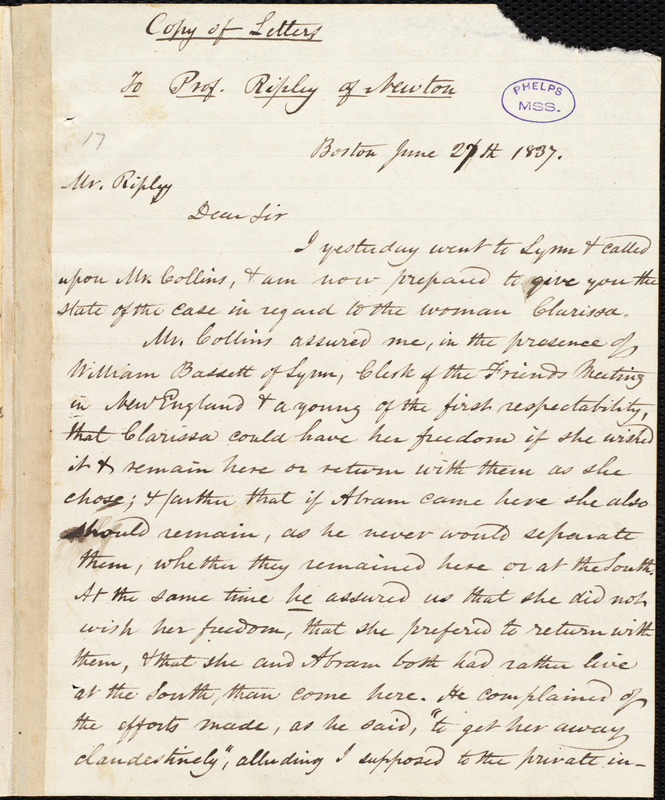 Copy of Letters
To Prof. Ripley of Newton
PHELPS
MSS.
17
Boston June 27th 1837.
Mr. Ripley
Dear Sir
I yesterday went to Lynn & called
upon Mr. Collins, & am now prepared to give you the
state of the case in regard to the woman Clarissa.
Mr. Collins assured me, in the presence of
William Bassett of Lynn, Clerk of the Friends Meeting
in New England & a young of the first respectability,
that Clarissa could have her freedom if she wished
it & remain here or return with them as she
chose; & farther that if Abram came here she also
should remain, as he never would separate
them, whether they remained here or at the South.
At the same time he assured us that she did not
wish her freedom, that she prefered to return with
them, & that she and Abram both had rather live
at the South, than come here. He complained of
the efforts made, as he said, "to get her away
clandestinely", alluding I supposed to the private in-